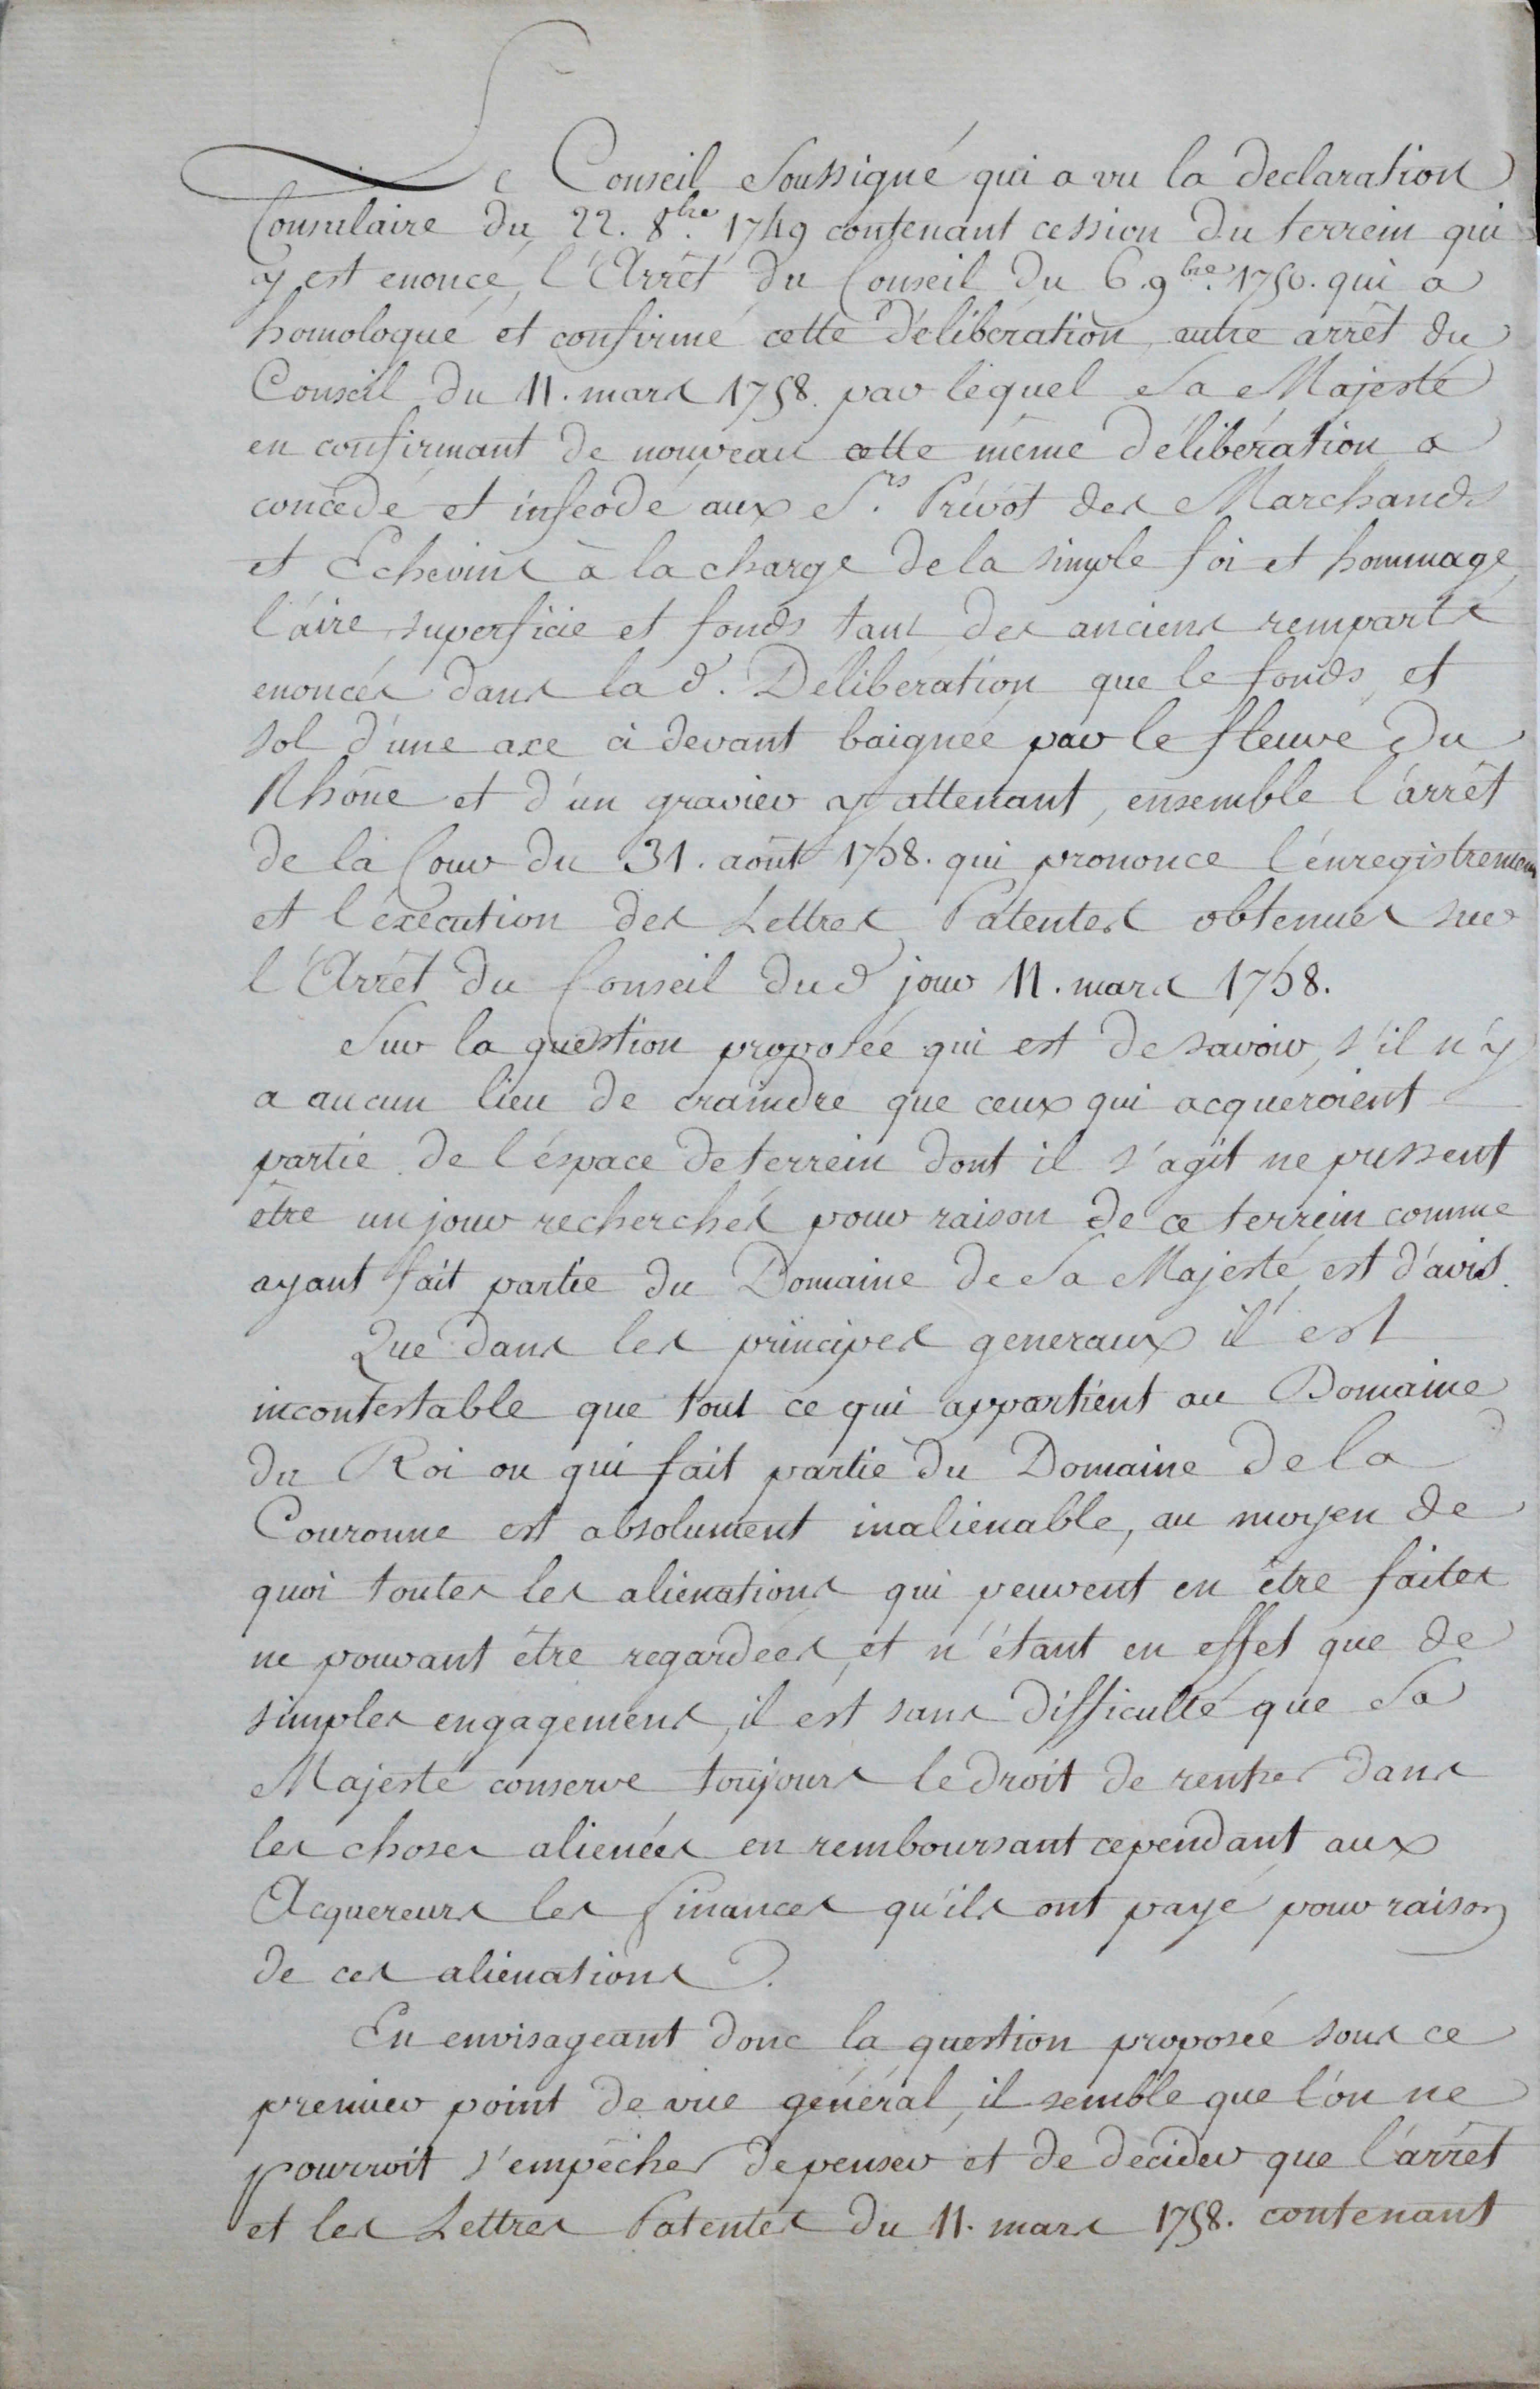 Le Conseil Soussigné qui a vu la declaration
Consulaire du 22. 8bre. 1749 contenant cession du terrein qui
y est enoncé, l'Arrêt du Conseil du 6. 9bre. 1750. qui a
homologué et confirmé cette déliberation, autre arrêt du
Conseil du 11. mars 1758. par lequel Sa Majesté
en confirmant de nouveau cette même délibération a
concedé et infeodé aux Srs. Prévôt des Marchands
et Echevins à la charge de la simple foi et hommage,
l'aire, superficie et fonds tant des anciens remparts
enoncés dans la d. Déliberation que le fonds et
sol d'une axe ci devant baignée par le fleuve du
Rhône et d'un gravier y attenant, ensemble l'arrêt
de la Cour du 31. août 1758. qui prononce l'enregistrement
et l'éxécution des Lettres Patentes obtenues sur
l'Arrêt du Conseil dud jour 11. mars 1758.
Sur la question proposée qui est de savoir, s'il n'y
a aucun lieu de craindre que ceux qui acqueroient
partie de l'éspace de terrein dont il s'agit ne pussent
être un jour recherchés pour raison de ce terrein comme
ayant fait partie du Domaine de Sa Majesté, est d'avis.
Que dans les principes generaux il est
incontestable que tout ce qui appartient au Domaine
du Roi ou qui fait partie du Domaine de la
Couronne est absolument inalienable, au moyen de
quoi toutes les aliénations qui peuvent en être faites
ne pouvant être regardées, et n'étant en effet que de
simples engagemens, il est sans difficulté que Sa
Majesté conserve toujours le droit de rentrer dans
les choses alienées en remboursant cependant aux
Acquereurs les finances qu'ils ont payé pour raison
de ces aliénations.
En envisageant donc la question proposée sous ce
premier point de vue général, il semble que l'on ne
pourroit s'empêcher de penser et de decider que l'arrêt
et les Lettres Patentes du 11. mars 1758. contenant